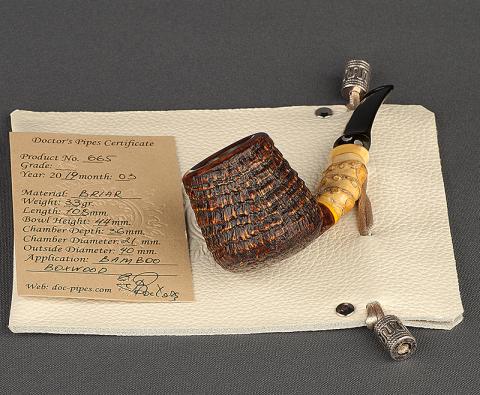 Doctor's Pipes Certificate
Product No. 665
Grade:
Year: 2019 month: 03
Material: BRIAR
Weight: 33gr.
Length: 108mm.
Bowl Height: 44mm.
Chamber Depth: 36mm.
Chamber Diameter: 21 mm.
Outside Diameter: 40 mm.
Application: BAMBOO
BOXWOOD
Web: doc-pipes.com